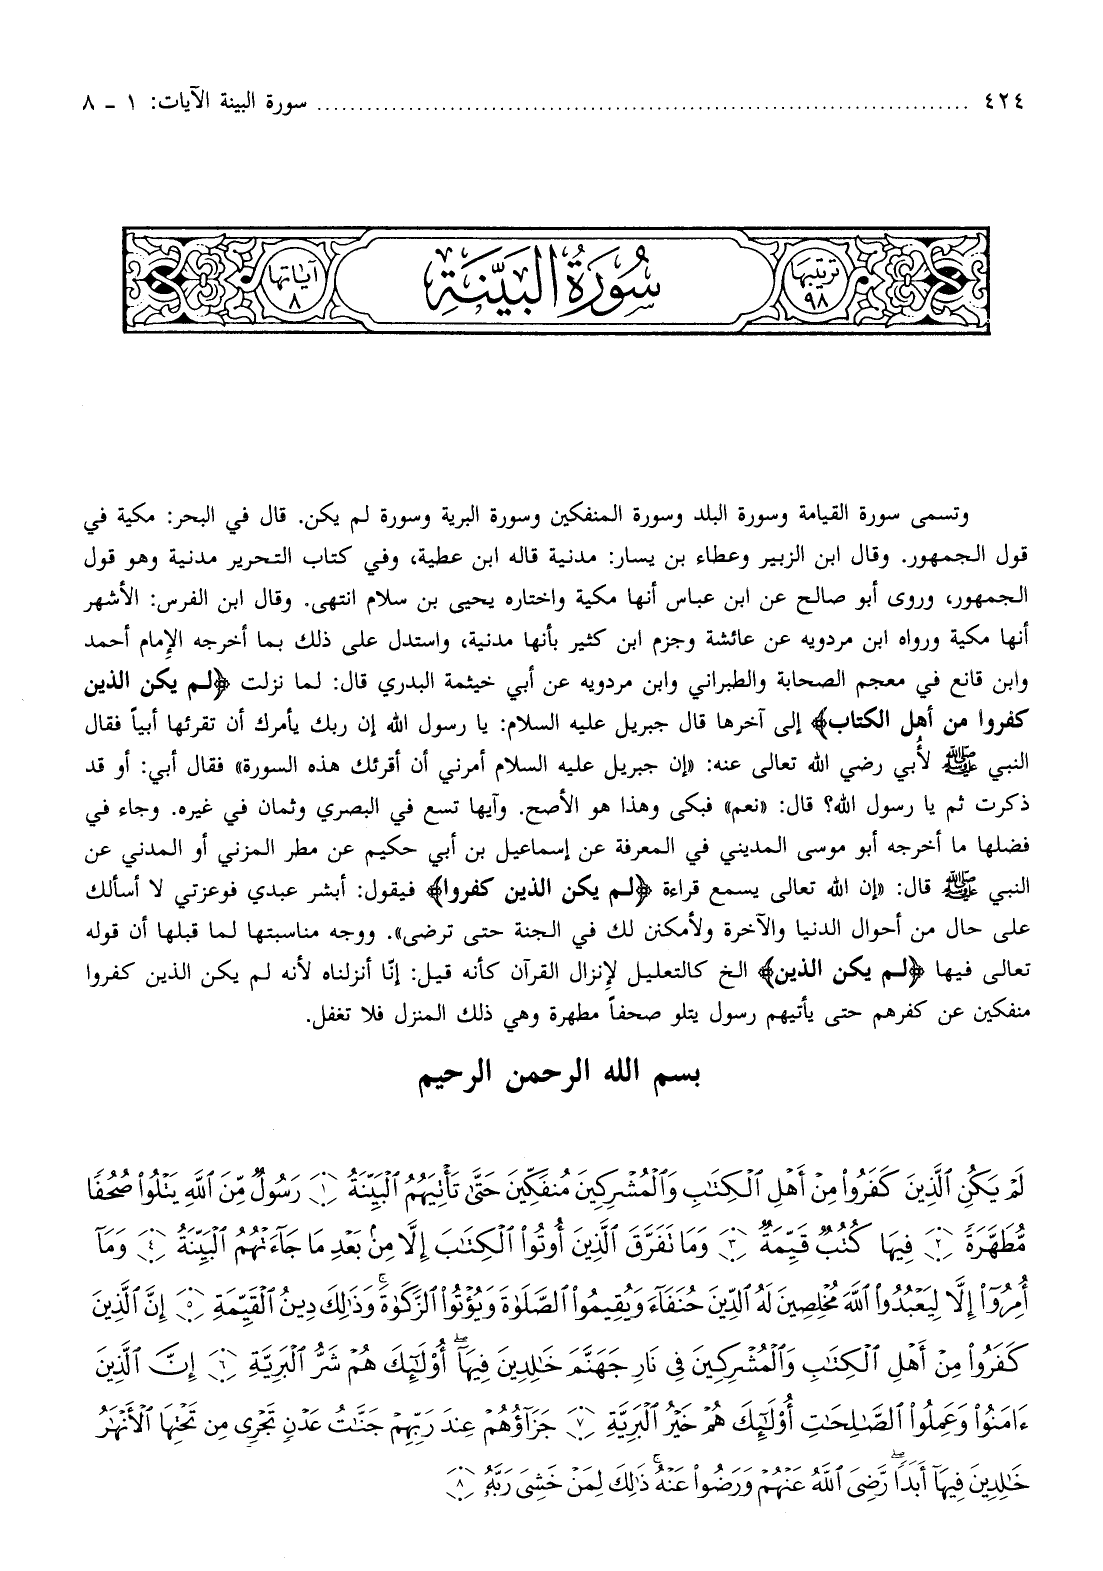 ٤٢٤ ........................................................................ سورة البينة الآيات: ١ - ٨
ترتيبها ٩٨ سُورَةُ البَيّنَةِ آياتها ٨
وتسمى سورة القيامة وسورة البلد وسورة المنفكين وسورة البرية وسورة لم يكن. قال في البحر: مكية في
قول الجمهور. وقال ابن الزبير وعطاء بن يسار: مدنية قاله ابن عطية، وفي كتاب التحرير مدنية وهو قول
الجمهور، وروى أبو صالح عن ابن عباس أنها مكية واختاره يحيى بن سلام انتهى. وقال ابن الفرس: الأشهر
أنها مكية ورواه ابن مردويه عن عائشة وجزم ابن كثير بأنها مدنية، واستدل على ذلك بما أخرجه الإمام أحمد
وابن قانع في معجم الصحابة والطبراني وابن مردويه عن أبي خيثمة البدري قال: لما نزلت ﴿لم يكن الذين
كفروا من أهل الكتاب﴾ إلى آخرها قال جبريل عليه السلام: يا رسول الله إن ربك يأمرك أن تقرئها أبياً فقال
النبي ﷺ لأُبي رضي الله تعالى عنه: «إن جبريل عليه السلام أمرني أن أقرئك هذه السورة» فقال أبي: أو قد
ذكرت ثم يا رسول الله؟ قال: «نعم» فبكى وهذا هو الأصح. وآيها تسع في البصري وثمان في غيره. وجاء في
فضلها ما أخرجه أبو موسى المديني في المعرفة عن إسماعيل بن أبي حكيم عن مطر المزني أو المدني عن
النبي ﷺ قال: «إن الله تعالى يسمع قراءة ﴿لم يكن الذين كفروا﴾ فيقول: أبشر عبدي فوعزتي لا أسألك
على حال من أحوال الدنيا والآخرة ولأمكنن لك في الجنة حتى ترضى». ووجه مناسبتها لما قبلها أن قوله
تعالى فيها ﴿لم يكن الذين﴾ الخ كالتعليل لإنزال القرآن كأنه قيل: إنّا أنزلناه لأنه لم يكن الذين كفروا
منفكين عن كفرهم حتى يأتيهم رسول يتلو صحفاً مطهرة وهي ذلك المنزل فلا تغفل.
بسم الله الرحمن الرحيم
لَمْ يَكُنِ ٱلَّذِينَ كَفَرُوا۟ مِنْ أَهْلِ ٱلْكِتَٰبِ وَٱلْمُشْرِكِينَ مُنفَكِّينَ حَتَّىٰ تَأْتِيَهُمُ ٱلْبَيِّنَةُ ﴿١﴾ رَسُولٌ مِّنَ ٱللَّهِ يَتْلُوا۟ صُحُفًا
مُّطَهَّرَةً ﴿٢﴾ فِيهَا كُتُبٌ قَيِّمَةٌ ﴿٣﴾ وَمَا تَفَرَّقَ ٱلَّذِينَ أُوتُوا۟ ٱلْكِتَٰبَ إِلَّا مِنۢ بَعْدِ مَا جَآءَتْهُمُ ٱلْبَيِّنَةُ ﴿٤﴾ وَمَآ
أُمِرُوٓا۟ إِلَّا لِيَعْبُدُوا۟ ٱللَّهَ مُخْلِصِينَ لَهُ ٱلدِّينَ حُنَفَآءَ وَيُقِيمُوا۟ ٱلصَّلَوٰةَ وَيُؤْتُوا۟ ٱلزَّكَوٰةَ ۚ وَذَٰلِكَ دِينُ ٱلْقَيِّمَةِ ﴿٥﴾ إِنَّ ٱلَّذِينَ
كَفَرُوا۟ مِنْ أَهْلِ ٱلْكِتَٰبِ وَٱلْمُشْرِكِينَ فِى نَارِ جَهَنَّمَ خَٰلِدِينَ فِيهَآ ۖ أُو۟لَٰٓئِكَ هُمْ شَرُّ ٱلْبَرِيَّةِ ﴿٦﴾ إِنَّ ٱلَّذِينَ
ءَامَنُوا۟ وَعَمِلُوا۟ ٱلصَّٰلِحَٰتِ أُو۟لَٰٓئِكَ هُمْ خَيْرُ ٱلْبَرِيَّةِ ﴿٧﴾ جَزَآؤُهُمْ عِندَ رَبِّهِمْ جَنَّٰتُ عَدْنٍ تَجْرِى مِن تَحْتِهَا ٱلْأَنْهَٰرُ
خَٰلِدِينَ فِيهَآ أَبَدًا ۖ رَّضِىَ ٱللَّهُ عَنْهُمْ وَرَضُوا۟ عَنْهُ ۚ ذَٰلِكَ لِمَنْ خَشِىَ رَبَّهُۥ ﴿٨﴾